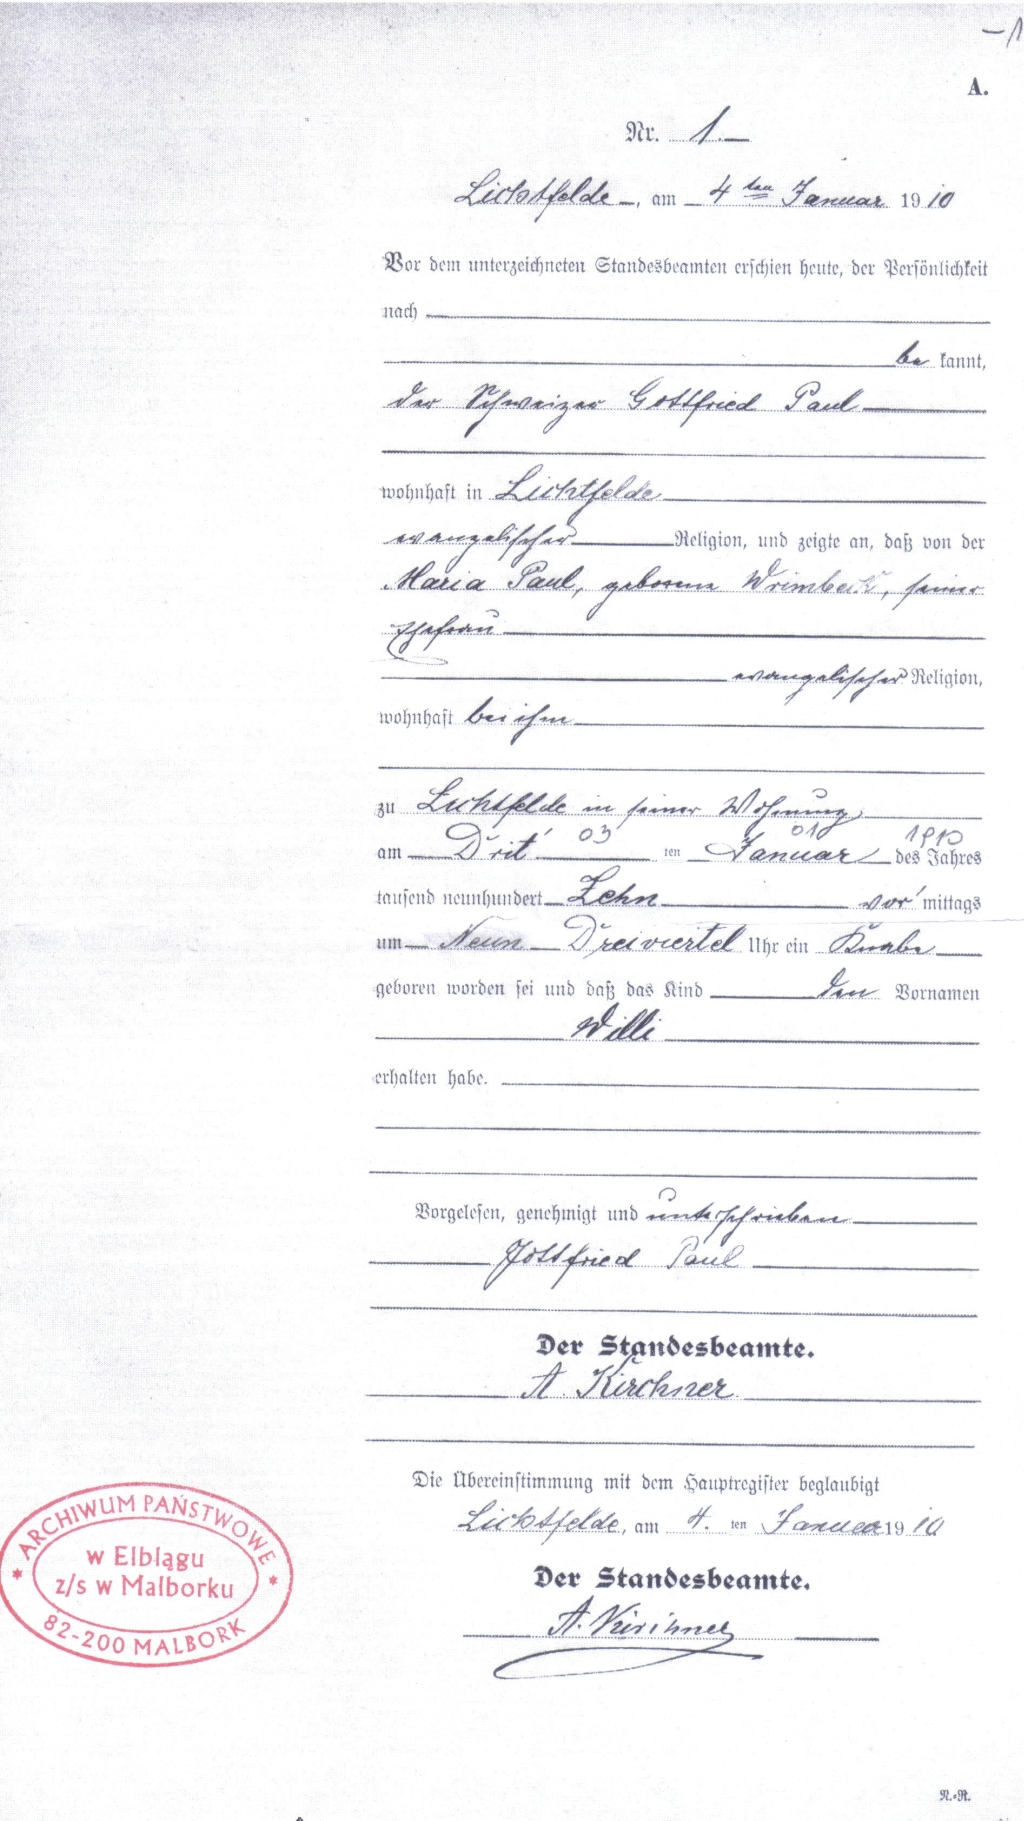 A.
Nr. 1.
Lichtfelde, am 4ten Januar 1910
Vor dem unterzeichneten Standesbeamten erschien heute, der Persönlichkeit
nach
be kannt,
der Schweizer Gottfried Paul
wohnhaft in Lichtfelde
evangelischer Religion, und zeigte an, daß von der
Maria Paul, geborene seiner
Ehefrau
evangelischer Religion,
wohnhaft bei ihm
zu Lichtfelde in seiner Wohnung
03 01 1910
am Drit ten Januar des Jahres
tausend neunhundert Zehn vor mittags
um Neun Dreiviertel Uhr ein Knabe
geboren worden sei und daß das Kind den Vornamen
Willi
erhalten habe.
Vorgelesen, genehmigt und unterschrieben
Gottfried Paul
Der Standesbeamte.
A. Kirchner
Die Übereinstimmung mit dem Hauptregister beglaubigt
Lichtfelde, am 4. ten Januar 1910
Der Standesbeamte.
A. Kirchner
ARCHIWUM PAŃSTWOWE
w Elblągu
z/s w Malborku
82-200 MALBORK
N.-R.